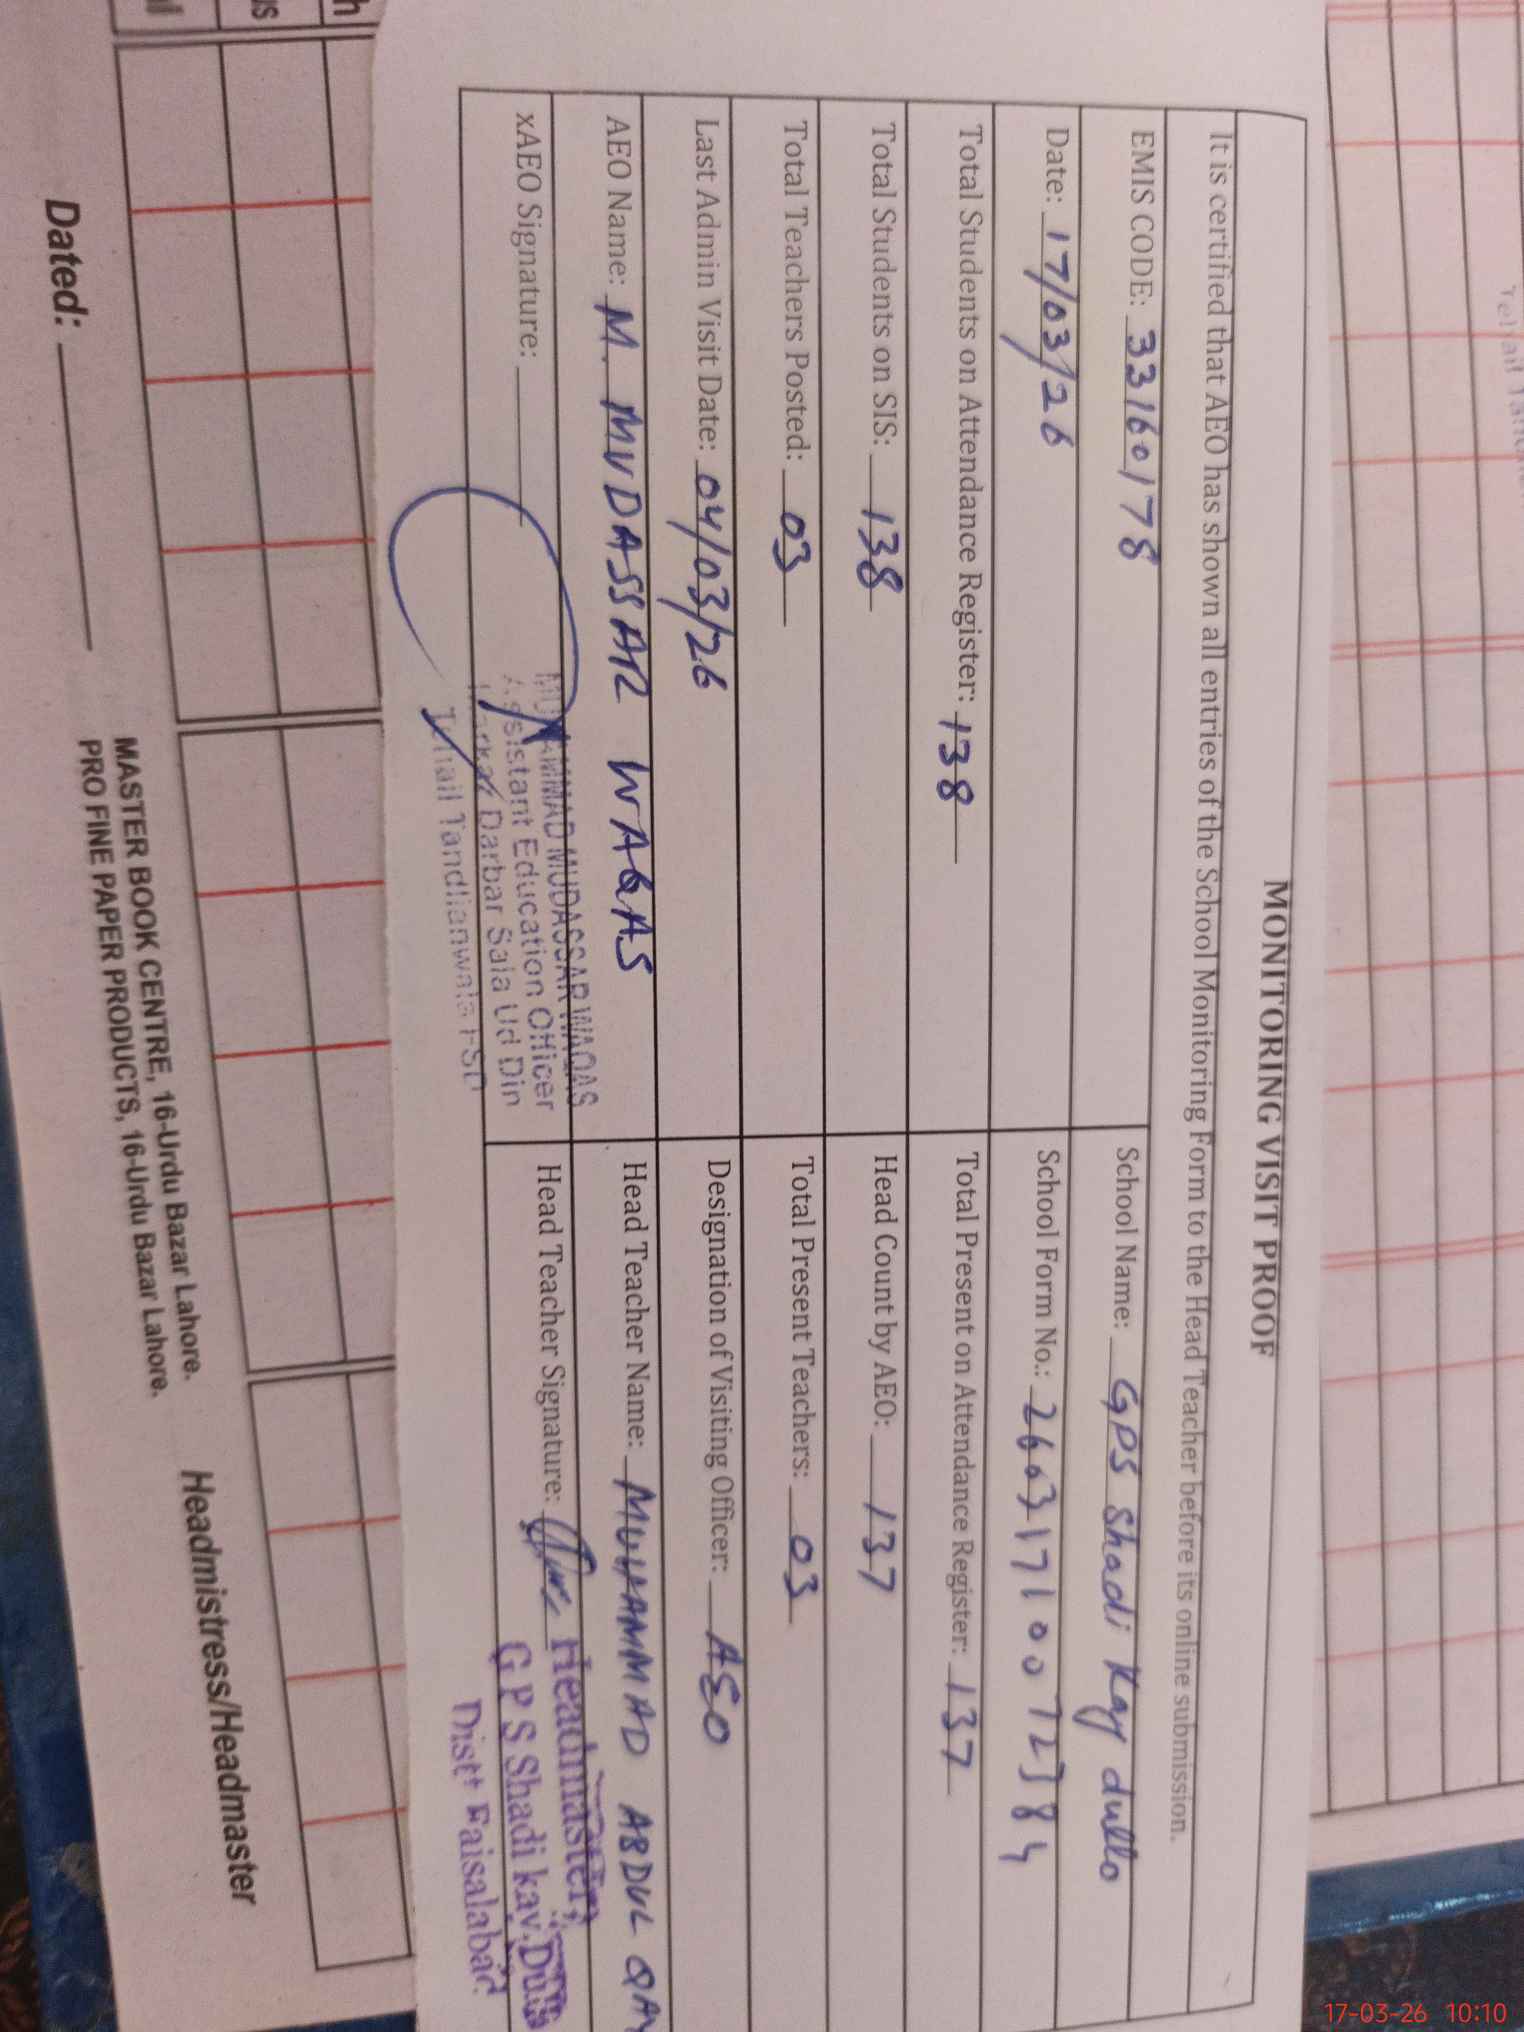 MONITORING VISIT PROOF
It is certified that AEO has shown all entries of the School Monitoring Form to the Head Teacher before its online submission.
EMIS CODE: 33160178
School Name: GPS Shadi Kay dullo
Date: 17/03/26
School Form No.: 2603171007238４
Total Students on Attendance Register: 138
Total Present on Attendance Register: 137
Total Students on SIS: 138
Head Count by AEO: 137
Total Teachers Posted: 03
Total Present Teachers: 03
Last Admin Visit Date: 04/03/26
Designation of Visiting Officer: AEO
AEO Name: M. MUDASSAR WAQAS
Head Teacher Name: MUHAMMAD ABDUL
xAEO Signature:
Head Teacher Signature:
MUHAMMAD MUDASSAR WAQAS
Assistant Education Officer
Markaz Darbar Sala Ud Din
Tehsil Tandlianwala FSD
Headmaster
G P S Shadi kay
Distt Faisalabad
MASTER BOOK CENTRE, 16-Urdu Bazar Lahore.
PRO FINE PAPER PRODUCTS, 16-Urdu Bazar Lahore.
Dated:
Headmistress/Headmaster
17-03-26 10:10